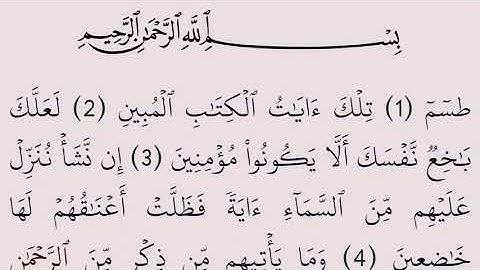 بِسْمِ ٱللَّهِ ٱلرَّحْمَٰنِ ٱلرَّحِيمِ
طسٓمٓ (1) تِلْكَ ءَايَٰتُ ٱلْكِتَٰبِ ٱلْمُبِينِ (2) لَعَلَّكَ
بَٰخِعٌ نَّفْسَكَ أَلَّا يَكُونُوا۟ مُؤْمِنِينَ (3) إِن نَّشَأْ نُنَزِّلْ
عَلَيْهِم مِّنَ ٱلسَّمَآءِ ءَايَةً فَظَلَّتْ أَعْنَٰقُهُمْ لَهَا
خَٰضِعِينَ (4) وَمَا يَأْتِيهِم مِّن ذِكْرٍ مِّنَ ٱلرَّحْمَٰنِ